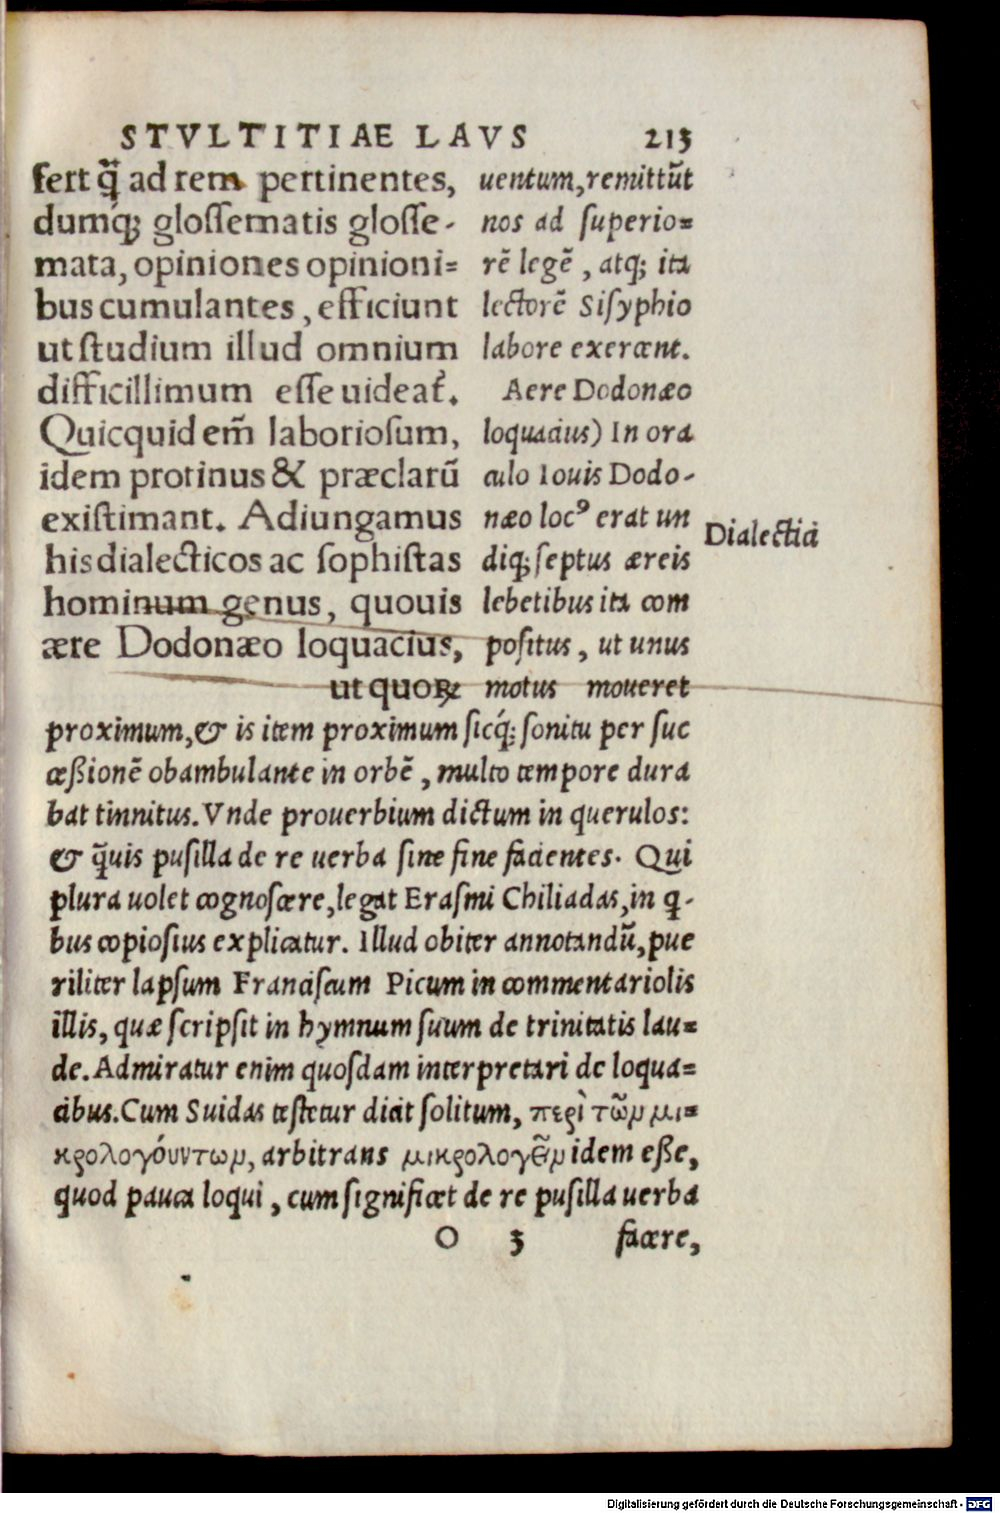 STVLTITIAE LAVS 213
fert q̃ ad rem pertinentes,
dumq́; gloſſematis gloſſe-
mata, opiniones opinioni=
bus cumulantes, efficiunt
ut ſtudium illud omnium
difficillimum eſſe uideat̃.
Quicquid em̃ laborioſum,
idem protinus & præclarũ
exiſtimant. Adiungamus
his dialecticos ac ſophiſtas
hominum genus, quouis
ære Dodonæo loquacius,
ut quoꝝ
uentum, remittũt
nos ad ſuperio=
rẽ legẽ, atq; ita
lectorẽ Siſyphio
labore exercent.
Aere Dodonæo
loquacius) In ora
culo Iouis Dodo-
næo locꝰ erat un
diq; ſeptus æreis
lebetibus ita com
poſitus, ut unus
motus moueret
Dialectici
proximum, & is item proximum ſicq́; ſonitu per ſuc
ceßionẽ obambulante in orbẽ, multo tempore dura
bat tinnitus. Vnde prouerbium dictum in querulos:
& q̃uis puſilla de re uerba ſine fine facientes. Qui
plura uolet cognoſcere, legat Eraſmi Chiliadas, in q-
bus copioſius explicatur. Illud obiter annotandũ, pue
riliter lapſum Franciſcum Picum in commentariolis
illis, quæ ſcripſit in hymnum ſuum de trinitatis lau=
de. Admiratur enim quoſdam interpretari de loqua=
cibus. Cum Suidas teſtetur dici ſolitum, περὶ τῶν μι=
κρολογόυντων, arbitrans μικρολογεῖν idem eße,
quod pauca loqui, cum ſignificet de re puſilla uerba
O 3 facere,
Digitalisierung gefördert durch die Deutsche Forschungsgemeinschaft - DFG